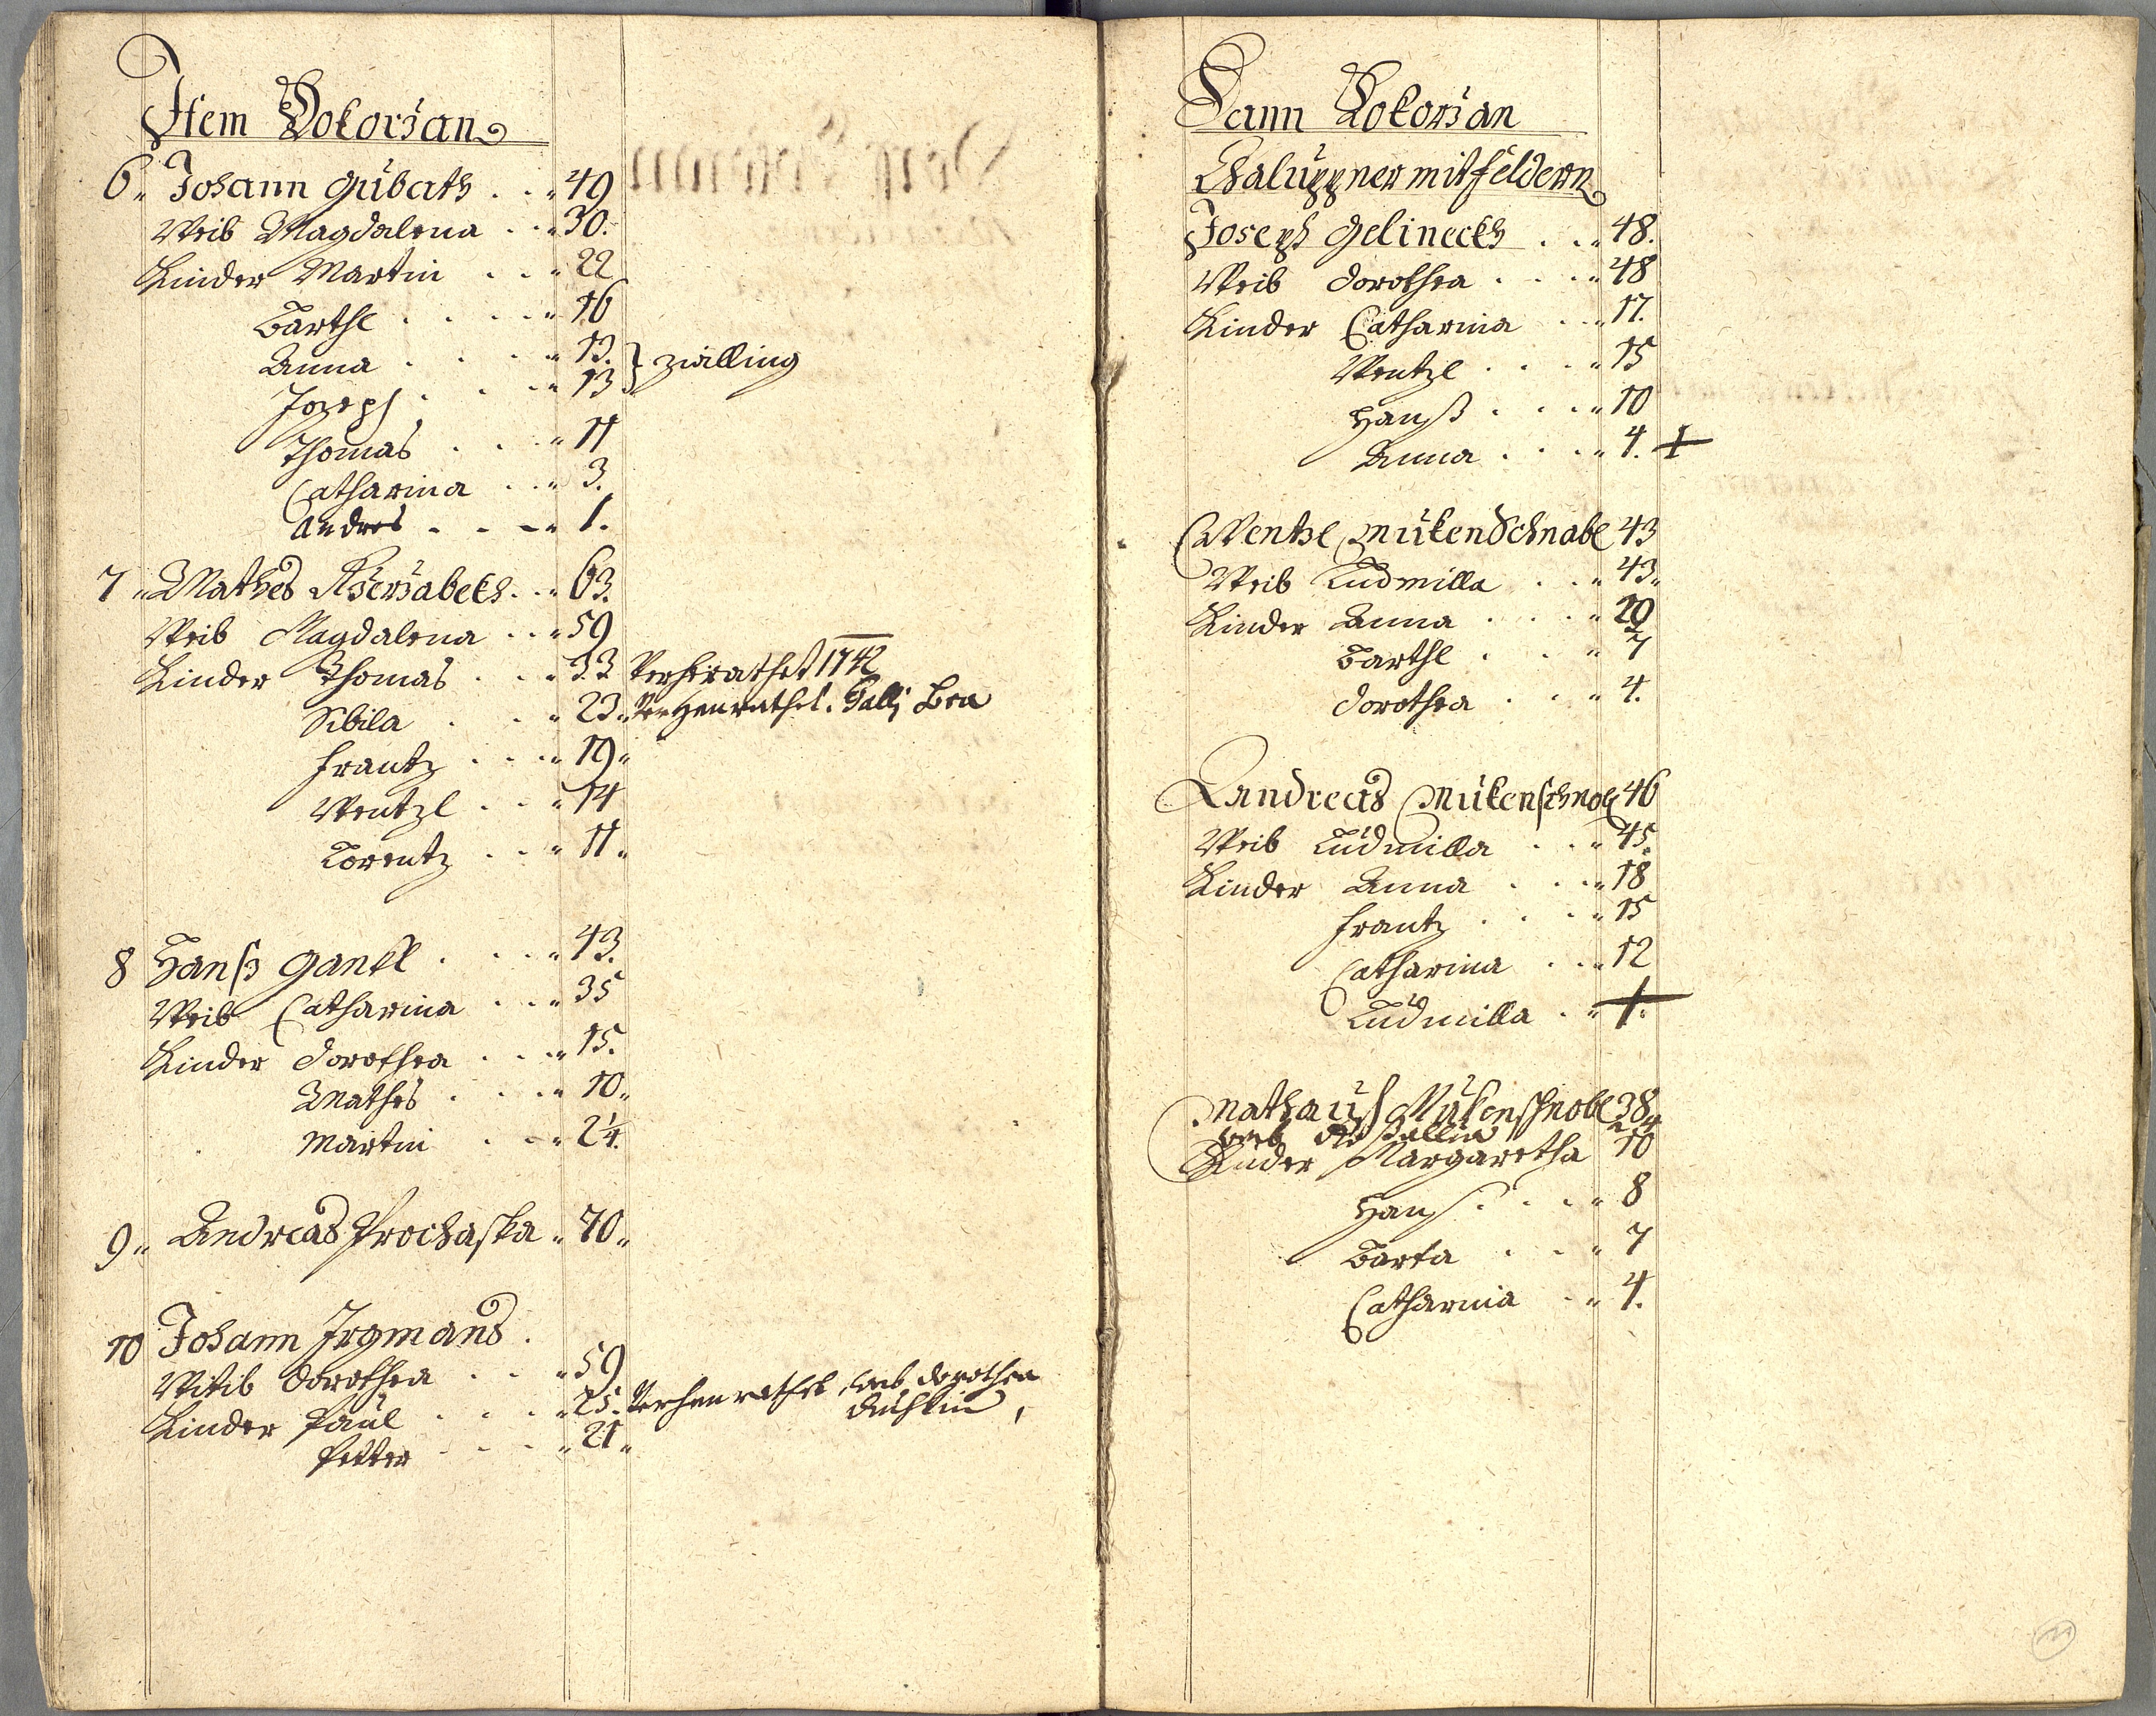 Item Dokorsan
6 „ Johann Gubath . . „ 49
Weib Magdalena . . „ 30.
Kinder Martin . . „ 22
Barthl . . . . „ 16
Anna . . . . „ 13. } zwilling
Joseph . . . „ 13
Thomas . . . „ 11
Catharina . . „ 3.
Andres . . . „ 1.
7 „ Mathes . . „ 63.
Weib Magdalena . . „ 59
Kinder Thomas . . „ 33 Verheirathet 1742
Sibila . . . „ 23 „ Galli
Frantz . . . „ 19 „
Wentzl . . . „ 14
Lorentz . . . „ 11 „
8 Hanß Gankl . . . „ 43.
Weib Catharina . . . „ 35
Kinder Dorothea . . . „ 15.
Mathes . . . . „ 10 „
Martin . . . „ 2¼.
9 „ Andreas Prochaska „ 70 „
10 Johann Irgmans .
Witib Dorothea . . . „ 59
Kinder Paul . . . „ 25. Verheurathet, Dorothea
Petter . . . „ 21 „
Dann Dokorsan
Chaluppner mit feldern
Joseph Gelineckh . . „ 48.
Weib Dorothea . . . „ 48
Kinder Catharina . . „ 17.
Wentzl . . . „ 15
Hanß . . . „ 10
Anna . . . „ 4. +
Wentzl MukenSchnabl 43
Weib Ludmilla . . „ 43 „
Kinder Anna . . . „ 19
Barthl . . . „ 7
Dorothea . . . „ 4.
Andreas Mukenschnobl 46
Weib Ludmilla . . „ 45.
Kinder Anna . . . „ 18
Frantz . . . „ 15
Catharina . . „ 12
Ludmilla . „ 1.
Mathauß Mukenschnobl 38 „
Weib
Kinder Margaretha 10
Hanß . . . „ 8
Barta . . . „ 7
Catharina . . „ 4.